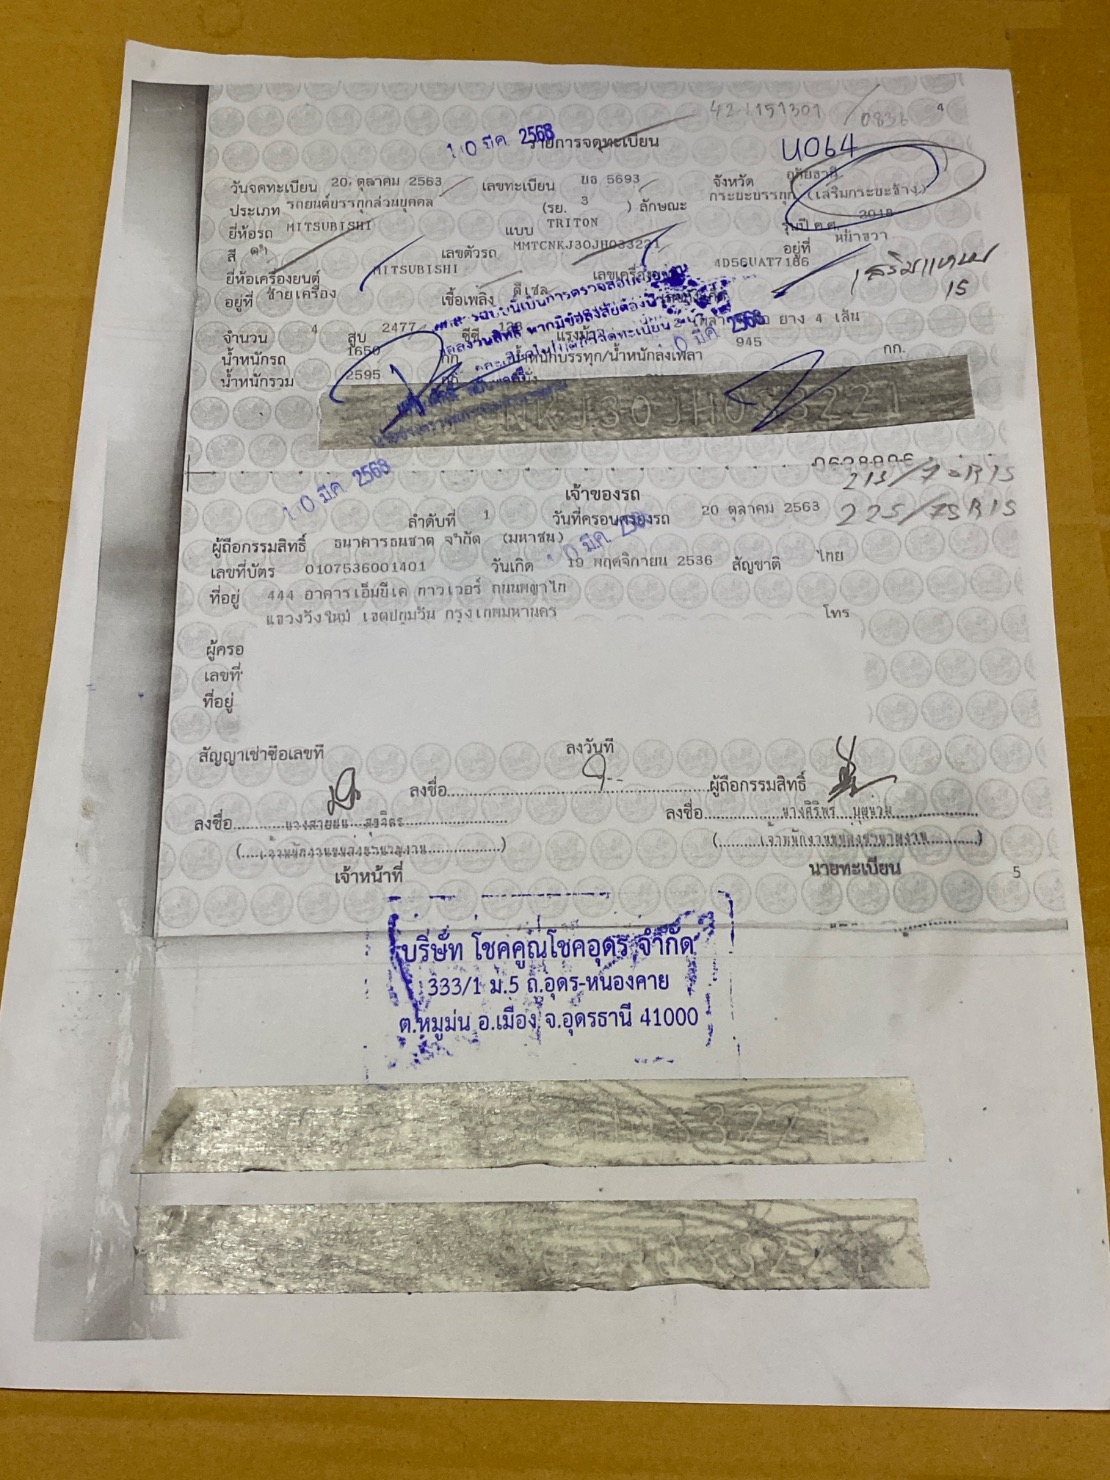 42/151301 /0836
4
10 มี.ค. 2568
รายการจดทะเบียน
U064
วันจดทะเบียน 20 ตุลาคม 2563 เลขทะเบียน บธ 5693 จังหวัด อุทัยธานี
ประเภท รถยนต์บรรทุกส่วนบุคคล (รย. 3 ) ลักษณะ กระบะบรรทุก (เสริมกระบะข้าง)
ยี่ห้อรถ MITSUBISHI แบบ TRITON รุ่นปี ค.ศ. 2018
สี ดำ เลขตัวรถ MMTCNKJ30JH033221 อยู่ที่ หน้าขวา
ยี่ห้อเครื่องยนต์ MITSUBISHI เลขเครื่องยนต์ 4D56UAT7186
อยู่ที่ ซ้ายเครื่อง เชื้อเพลิง ดีเซล
เสริมแหนบ
15
จำนวน 4 สูบ 2477 ซีซี แรงม้า ยาง 4 เส้น
น้ำหนักรถ 1650 กก. น้ำหนักบรรทุก/น้ำหนักลงเพลา 945 กก.
น้ำหนักรวม 2595 กก.
10 มี.ค. 2568
NKJ30JH033221
215/70R15
225/75R15
10 มี.ค. 2568
เจ้าของรถ
ลำดับที่ 1 วันที่ครอบครองรถ 20 ตุลาคม 2563
ผู้ถือกรรมสิทธิ์ ธนาคารธนชาต จำกัด (มหาชน)
เลขที่บัตร 0107536001401 วันเกิด 19 พฤศจิกายน 2536 สัญชาติ ไทย
ที่อยู่ 444 อาคารเอ็มบีเค ทาวเวอร์ ถนนพญาไท
แขวงวังใหม่ เขตปทุมวัน กรุงเทพมหานคร โทร
ผู้ครอ
เลขที่
ที่อยู่
สัญญาเช่าซื้อเลขที่ ลงวันที่
ลงชื่อ ผู้ถือกรรมสิทธิ์
ลงชื่อ ลงชื่อ
(เจ้าพนักงานขนส่งชำนาญงาน) (เจ้าพนักงานขนส่งชำนาญงาน)
เจ้าหน้าที่ นายทะเบียน
5
บริษัท โชคคูณโชคอุดร จำกัด
333/1 ม.5 ถ.อุดร-หนองคาย
ต.หมูม่น อ.เมือง จ.อุดรธานี 41000